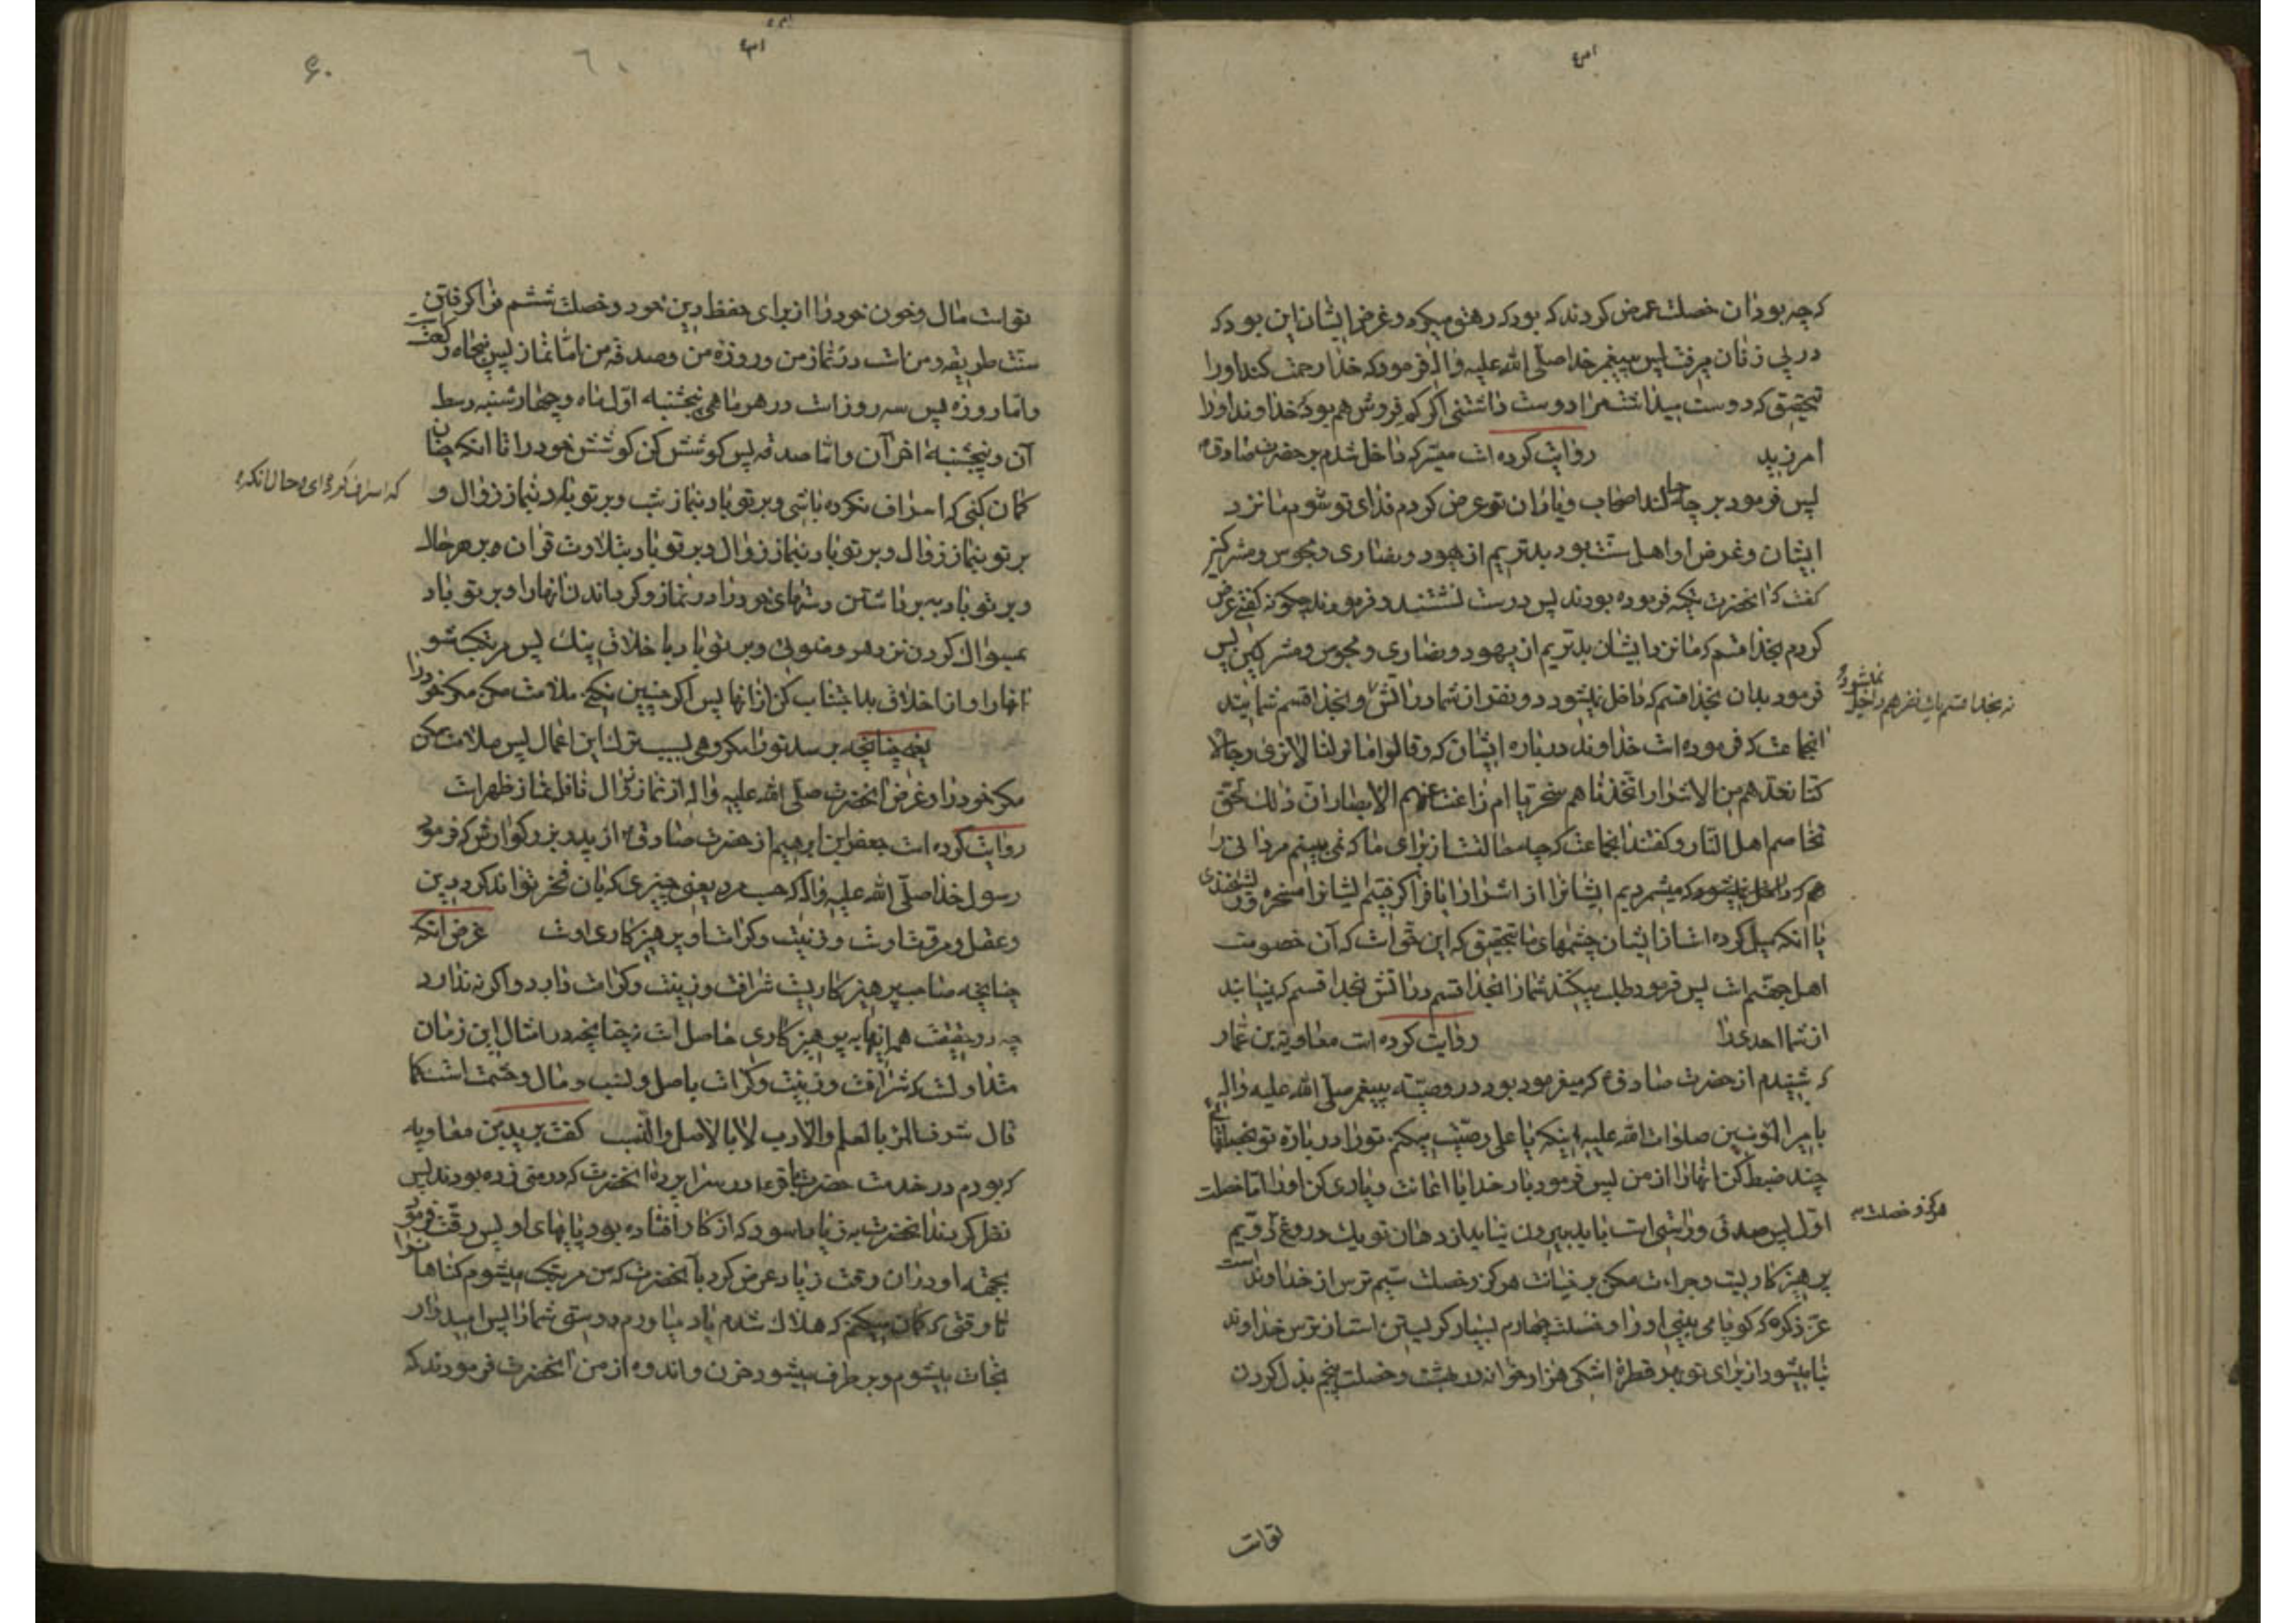 که چه بود آن خصلت عرض کردند که بود که رهنو میکرد و غرض ایشان این بود که
در پی زنان میرفت پس پیغمبر خدا صلّی الله علیه و اله فرمود که خدا رحمت کند او را
بتحقیق که دوست میداشت مرا دوست داشتنی اگر کم فروش هم بود خداوند او را
امرزید روایت کرده است میسّر که داخل شدم بر حضرت صادق
پس فرمود بر چه حالند اصحاب و یاران تو عرض کردم فدای تو شوم ما نزد
ایشان و غرض او اهل سنّت بود بدتریم از یهود و نصاری و مجوس و مشرکین
گفت که آنحضرت تکیه فرموده بودند پس درست نشستند و فرمودند چگونه گفتی عرض
کردم بخدا قسم که ما نزد ایشان بدتریم از یهود و نصاری و مجوس و مشرکین پس
فرمود بدان بخدا قسم که داخل نمیشود دو نفر از شما در آتش و بخدا قسم شمائید
نمیشود
نه بخدا قسم یک نفر هم داخل
انجماعت که فرموده است خداوند در باره ایشان که و قالوا ما لنا لا نری رجالا
کنّا نعدّهم من الاشرار اتّخذناهم سخریّا ام زاغت عنهم الابصار انّ ذلک لحق
تخاصم اهل النّار و گفتند انجماعت که چه مطالبست از برای ما که نمی بینیم مردانی را
که میشمردیم ایشانرا از اشرار ایا فرا گرفتیم ایشانرا مسخره و ریشخندی
یا انکه میل کرده است از ایشان چشمهای ما بتحقیق که این حق است که آن خصومت
اهل جهنّم است پس فرمود طلب میکنند شما را بخدا قسم در آتش بخدا قسم که نمییابند
از شما احدی را روایت کرده است معاویة بن عمّار
که شنیدم از حضرت صادق که میفرمود بود در وصیّت پیغمبر صلّی الله علیه و اله
بامیر المؤمنین صلوات الله علیه اینکه یا علی وصیّت میکنم تو را در باره تو بخصلتهای
چند ضبط کن انها را از من پس فرمود بار خدایا اعانت و یاری کن او را امّا خصلت
اوّل پس صدق و راستی است باید بیرون نیاید از دهان تو یک دروغ دویّم
هرگز و خصلت
پرهیزکاریست و جراءت مکن بر خیانت هرگز و خصلت سیّم ترس از خداوند است
عزّ ذکره که گویا می بینی او را و خصلت چهارم بسیار گریستن است از ترس خداوند
بنا میشود از برای تو بهر قطره اشکی هزار خانه در بهشت و خصلت پنجم بذل کردن
تواست
۶۰
تواست مال و خون خود را از برای حفظ دین خود و خصلت ششم فرا گرفتن
سنّت طریقه و من است در نماز من و روزه من و صدقه من امّا نماز پس پنجاه رکعت
و امّا روزه پس سه روز است در هر ماهی پنجشنبه اوّل ماه و چهارشنبه وسط
آن و پنجشنبه اخر آن و امّا صدقه پس کوشش کن کوشش خود را تا انکه چنان
گمان کنی که اسراف نکرده باشی و بر تو باد بنماز شب و بر تو باد بنماز زوال و
که اسراف کرده ای و حال آنکه
بر تو بنماز زوال و بر تو باد بنماز زوال و بر تو باد بتلاوت قران در هر حال
و بر تو باد به برداشتن دستهای خود را در نماز و گرداندن انها را و بر تو باد
بمسواک کردن نزد هر وضوئی و بر تو باد با خلاق نیک پس مرتکب شو
انها را و از اخلاق بد اجتناب کن از انها پس اگر چنین نکنی ملامت مکن مگر خود را
یعنی چنانچه برسد تو را مکروهی بسبب ترک این اعمال پس ملامت مکن
مگر خود را و غرض آنحضرت صلّی الله علیه و اله از نماز زوال نافله نماز ظهر است
روایت کرده است جعفر ابن ابرهیم از حضرت صادق از پدر بزرگوارش که فرمود
رسول خدا صلّی الله علیه و اله که حسب مرد یعنی چیزی که بان فخر تواند کرد دین
و عقل و مروّتش اوست و زینت و کرامت او پرهیزکاری اوست غرض انکه
چنانچه صاحب پرهیزکاریست شرافت و زینت و کرامت دارد و اگر نه ندارد
چه در حقیقت همه اینها به پرهیزکاری حاصل است نه چنانچه در امثال این زمان
متداولست که شرافت و زینت و کرامت باصل و نسب و مال و حشمت است کما
قال شرف المرء بالعلم و الادب لا بالاصل و النّسب گفت برید بن معاویه
که بودم در خدمت حضرت باقر در سراپرده آنحضرت که در منی زده بودند پس
نظر کردند آنحضرت به زیاد اسود که از کار افتاده بود پاهای او پس رقّت فرمود
بجهة او در آن وقت زیاد عرض کرد بآنحضرت که من مرتکب میشوم گناهان را
تا وقتی که گمان میکنم که هلاک شدم یاد میاورم دوستی شما را پس امیدوار
نجات میشوم و بر طرف میشود حزن و اندوه از من آنحضرت فرمودند که